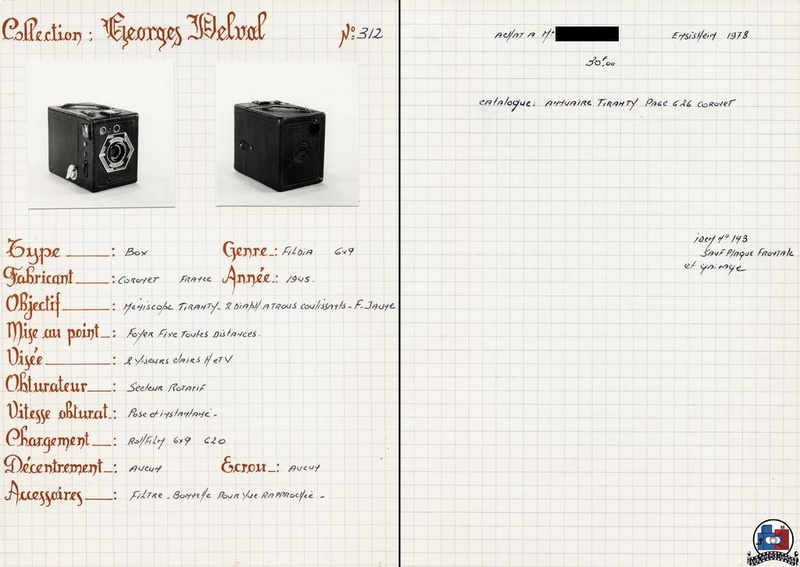 Collection : Georges Delval N°: 312
Type : Box Genre : Fildia 6x9
Fabricant : Coronet France Année : 1945.
Objectif : Méniscope Tiranty - 2 Diaph à trous coulissants - F. Jaune
Mise au point : Foyer Fixe Toutes Distances.
Visée : 2 Viseurs clairs H et V
Obturateur : Secteur Rotatif
Vitesse obturat. : Pose et instantané -
Chargement : Rollfilm 6x9 620
Décentrement : Aucun Ecrou : Aucun
Accessoires : Filtre . Bonnette pour vue rapprochée -
Achat à Mr Ensisheim 1978
30F,00
catalogue: Annuaire Tiranty Page 626 Coronet
idem n° 143
sauf plaque frontale
et gainage